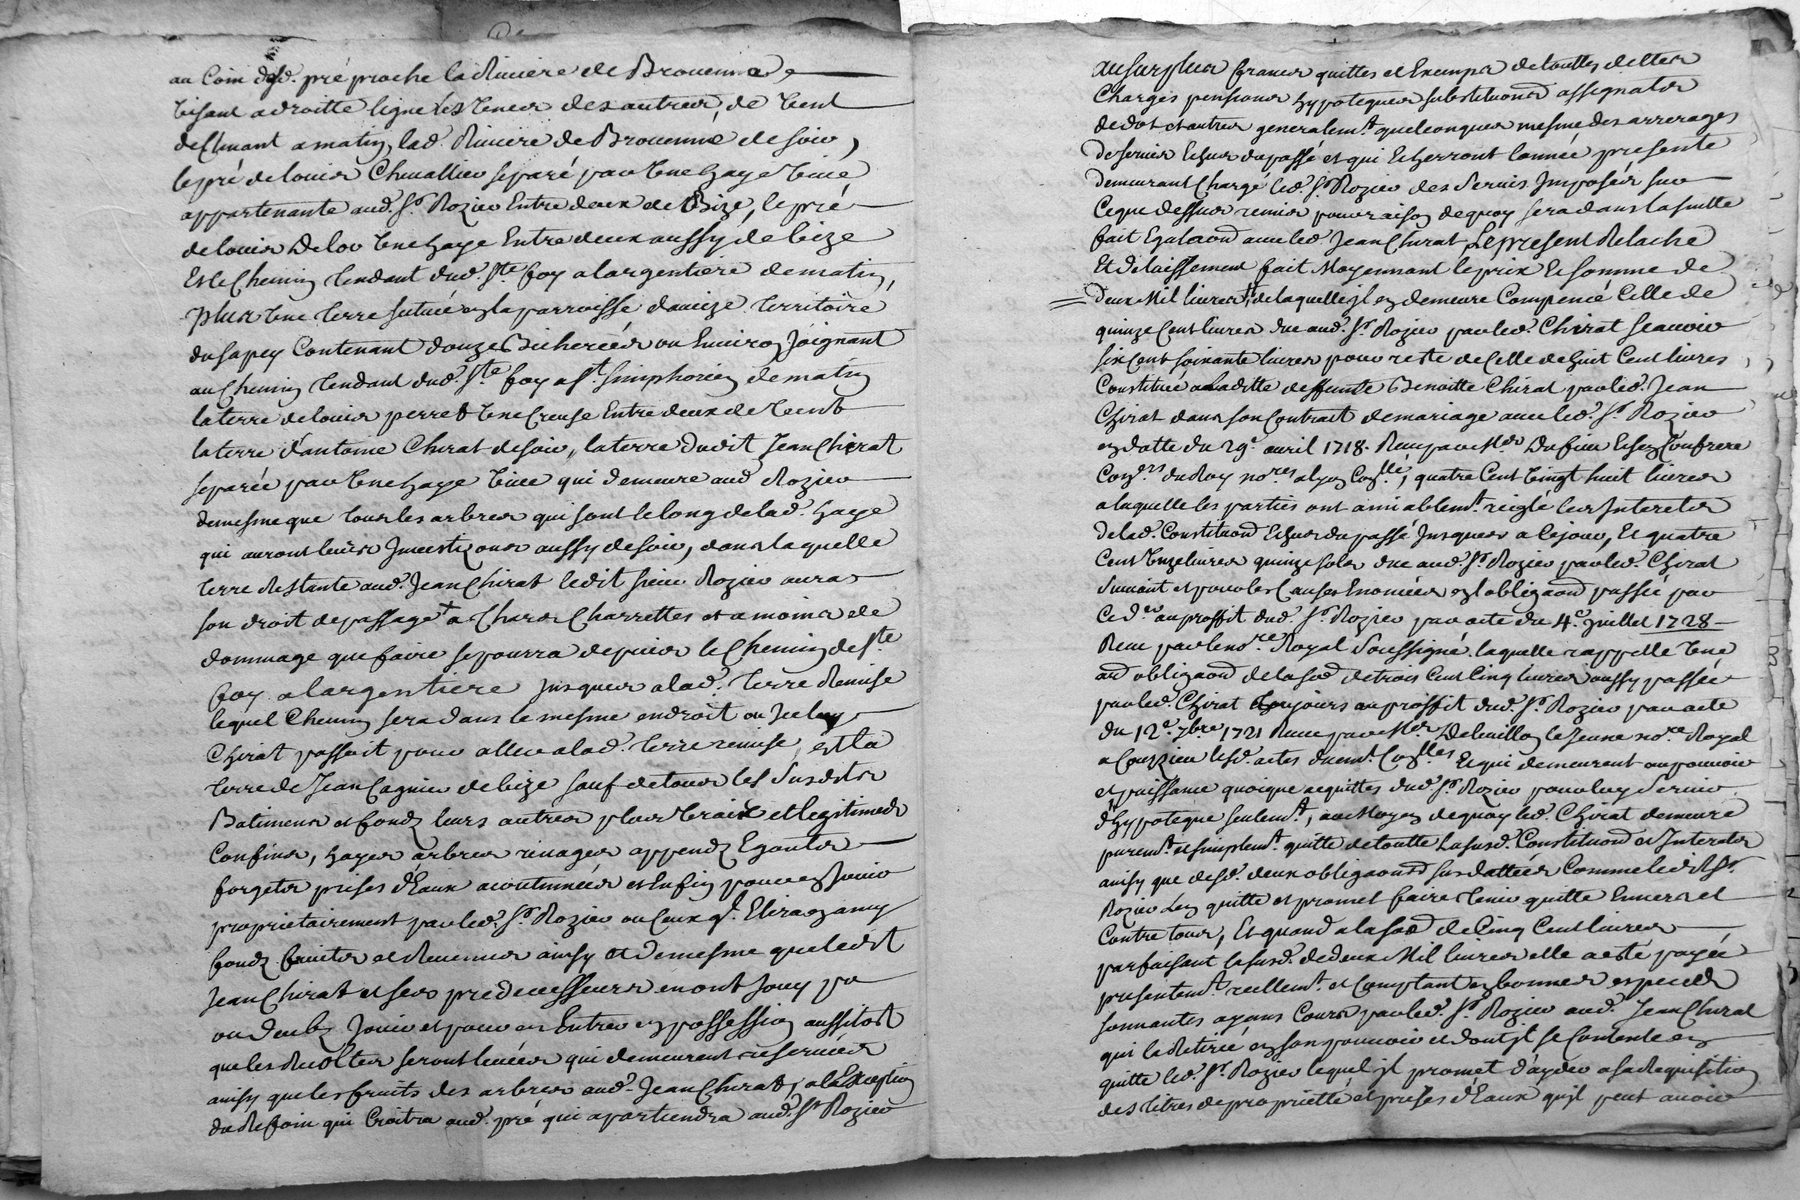 au Coin dud. pré proche la Riviere de Brouenne
tisant a droitte ligne les tenes des autres, de vent
declinant a matin, lad. Riviere de Brouenne de soir,
le pré de louis Chevallier separé par une haye vive
appartenante aud. Sr. Rozier Entre deux de Bize, le pré
de louis Delor une haye Entre deux aussy de bize
Et le Chemin tendant dud. Ste. foy a largentiere de matin,
Plus une terre situee en la parroisse daveize territoire
du sapey Contenant douze Bicherées ou Environ Joignant
au Chemin tendant dud. Ste. foy a St. Simphorien de matin
la terre de louis perret une Creuse Entre deux de vent
la terre d'antoine Chirat de soir, la terre dudit Jean Chirat
separée par une haye vive qui demeure aud Rozier
de mesme que tous les arbres qui sont le long de lad. haye
qui auront leurs Investizons aussy de soir, dans laquelle
terre Restante aud. Jean Chirat ledit sieur Rozier aura
son droit de passage a Chars Charrettes et a moins de
dommage que faire se pourra depuis le Chemin de Ste.
foy a largentiere Jusques a lad. terre Remise
lequel Chemin sera dans le mesme endroit ou Jceluy
Chirat passoit pour aller a lad. terre remise, et la
terre de Jean Cagnier de bize sauf de tous les Susdits
Batimens et fondz leurs autres plus vraix et legitimes
Confins, hayes arbres rivages appendz Egouts
forgets prises d'Eaux acoutumées et Enfin pour en Jouir
proprietairement par led. Sr. Rozier ou Ceux qt. Elira en amy
fondz fruits et Revenus ainsy et de mesme que ledit
Jean Chirat et ses predecesseurs en ont Jouy pu
ou deub Jouir et pour en Entrer en possession aussitost
que les Recoltes seront levées qui demeurent reservées
ainsy que les fruits des arbres aud. Jean Chirat, a la Exception
du Refoin qui Croitra aud. pré qui apartiendra aud. Sr Rozier
au surplus francs quittes et Exempts de touttes dettes
Charges pensions hypoteques substitutions assignats
de dot et autres generalemt. quelconques mesme des arrerages
de servis Echus du passé et qui Echerront lannée presente
demeurant Chargé led. Sr. Rozier des Servis Imposés sur
Ce que dessus remis pour raison de quoy sera dans la suitte
fait Egalaōn avec led. Jean Chirat Le present Relache
Et delaissement fait Moyennant le prix Et somme de
Deux Mil livres de laquelle jl en demeure Compencé Celle de
quinze Cent livres due aud. Sr. Rozier par led. Chirat scavoir
six Cent soixante livres pour reste de Celle de huit Cent livres
Constituée a Laditte deffunte Benoitte Chirat par led. Jean
Chirat dans son Contrait de mariage avec led. Sr. Rozier
en datte du 29e. avril 1718. Reçu par Mes. Dufieu et son Confrere
Conrs. du Roy nores. a lyon Conllé, quatre Cent vingt huit livres
a laquelle les parties ont amiablemt. reiglé les Interets
de lad. Constituōn Echus du passé Jusques a Cejour, Et quatre
Cent unze livres quinze sols due aud. Sr. Rozier par led. Chirat
Suivant et pour les Causes Enoncées en l'obligaōn passée par
Ced. er au proffit dud. Sr. Rozier par acte du 4e. Juillet 1728
Reçu par le nore. Royal Soussigné, laquelle rappelle une
aū obligaōn de la sōe de trois Cent Cinq livres aussy passée
par led. Chirat toujours au proffit dud. Sr. Rozier par acte
du 12e. 7bre 1721 Reçu par Me. Delevillon le Jeune nore. Royal
a Courzieu lesd. actes duemt. Conlles. Et qui demeurent au pouvoir
et puissance quoique acquittes dud. Sr. Rozier pour luy Servir
d'hypoteque seulemt., au Moyen de quoy led. Chirat demeure
puremt. et simplemt. quitte de toutte Lasusd. Constituōn et Interets
ainsy que desd. deux obligaōns susdattées Comme led. Sr.
Rozier Len quitte et promet faire tenir quitte Envers et
Contre tous, Et quand a la sōe de Cinq Cent livres
parfaisant lasusd. de deux Mil livres elle a esté payée
presentemt. reellemt. et Comptant en bonnes especes
sonnantes ayans Cours par led. Sr. Rozier aud. Jean Chirat
qui la Retirée en son pouvoir et dont jl se Contente en
quitte led. Sr. Rozier lequel jl promet d'ayder a sa Requisition
des titres de proprietté et prises d'Eaux qu'jl peut avoir